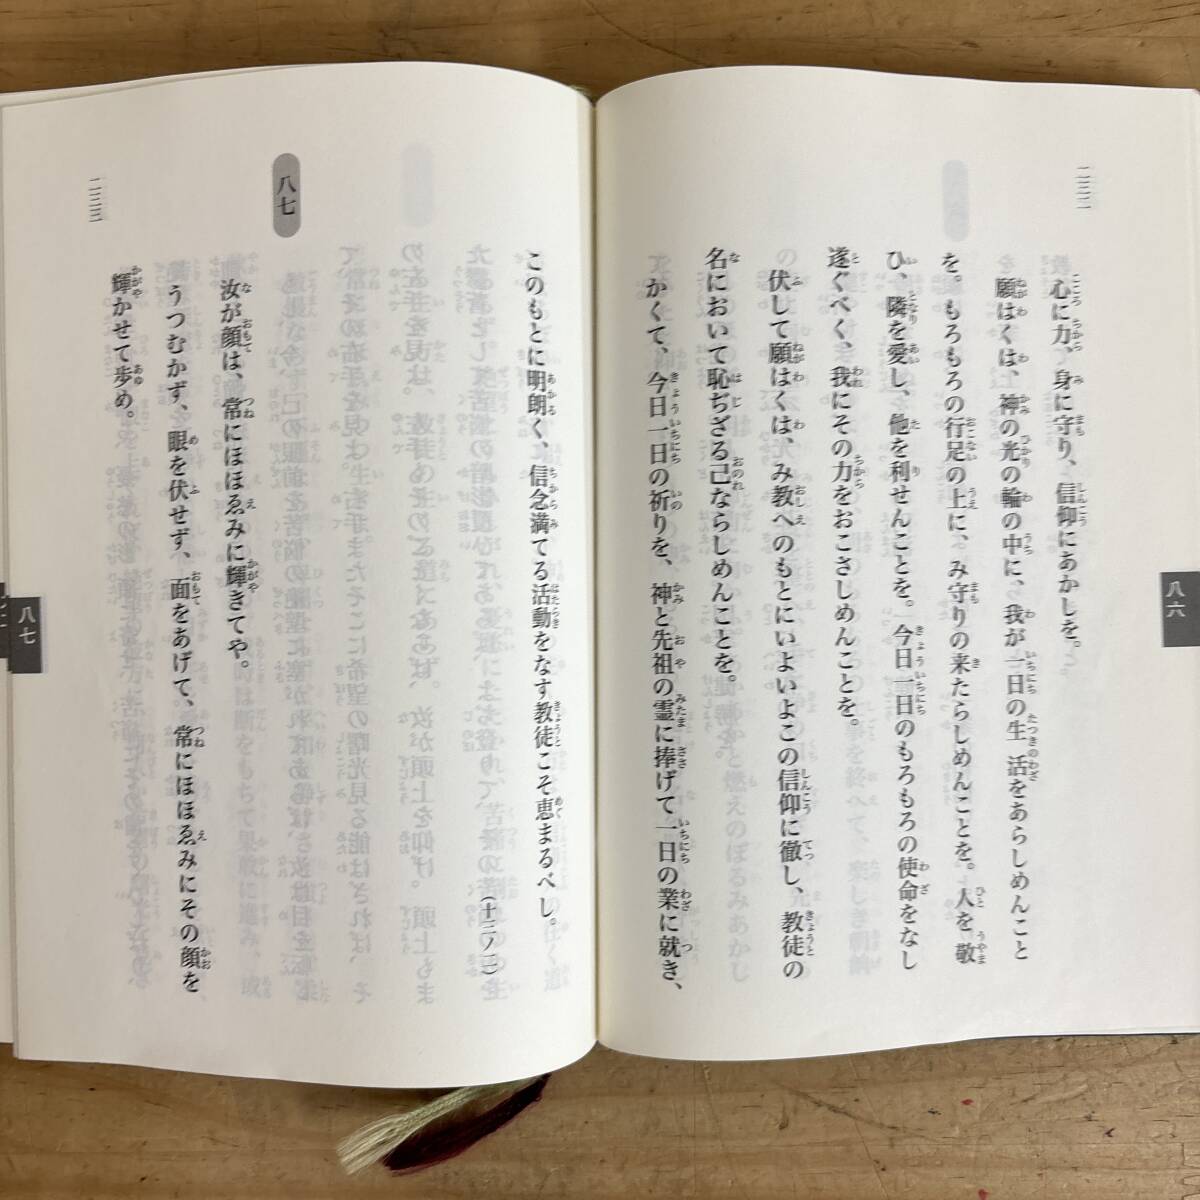 二三二
心に力、身に守り、信仰にあかしを。
願はくは、神の光の輪の中に、我が一日の生活をあらしめんこと
を。もろもろの行足の上に、み守りの来たらしめんことを。人を、敬
ひ、隣を愛し、他を利せんことを。今日一日のもろもろの使命をなし
遂ぐべく、我にその力をおこさしめんことを。
伏して願はくは、み教へのもとにいよいよこの信仰に徹し、教徒の
名において恥ぢざる己ならしめんことを。
かくて、今日一日の祈りを、神と先祖の霊に捧げて一日の業に就き、
八六
このもとに明朗く、信念満てる活動をなす教徒こそ恵まるべし。
（十三ノ二）
八七
汝が顔は、常にほほゑみに輝きてや。
うつむかず、眼を伏せず、面をあげて、常にほほゑみにその顔を
輝かせて歩め。
二三三
八七